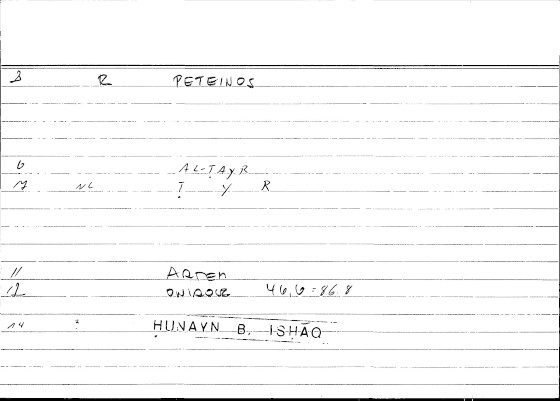 3 R PETEINOS
6 AL-ṬAyR
17 NL Ṭ y R
11 ARTEM
12 46,6 = 86.8
14 ḤUNAYN B. ISḤĀQ